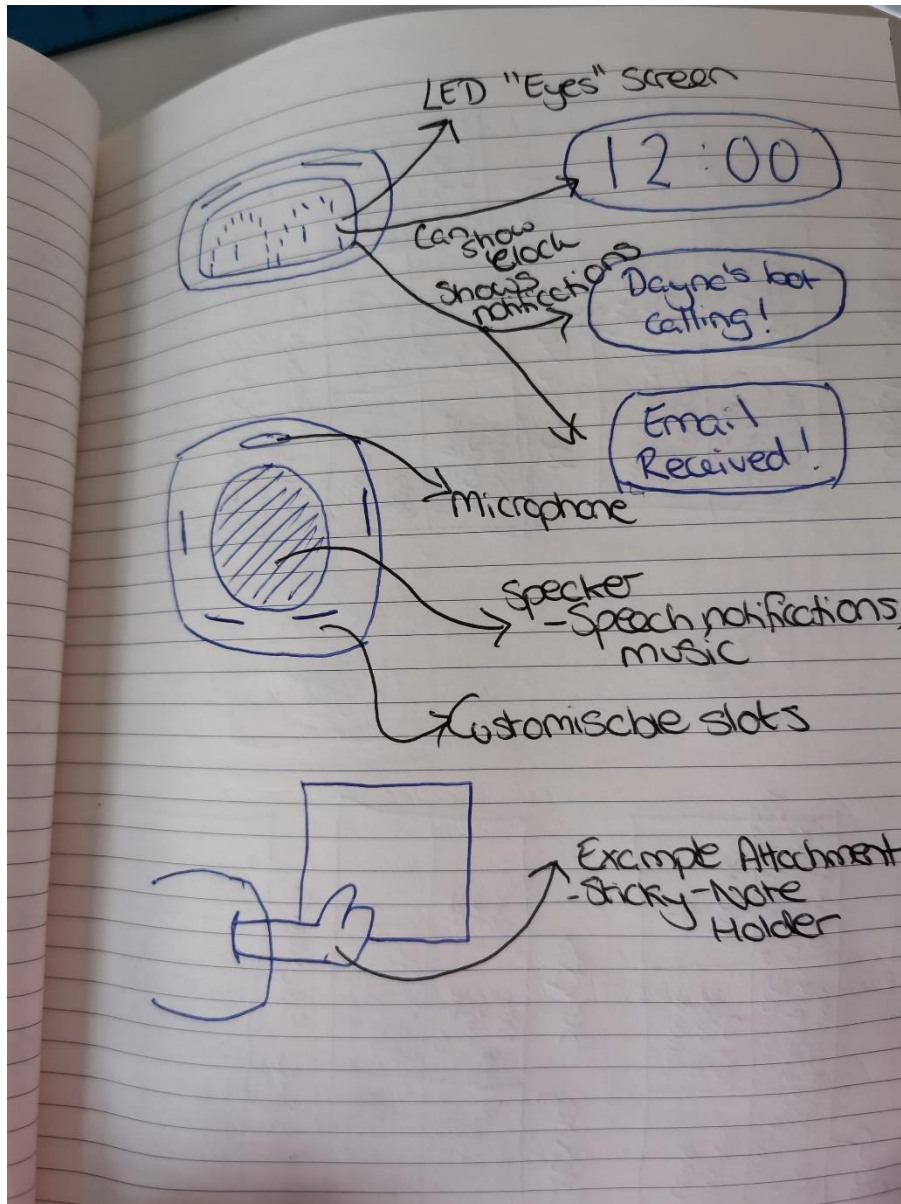 LED "Eyes" Screen
12:00
Can show
clock
Shows
notifications
Dayne's bot
calling!
Email
Received!
Microphone
Speaker
-Speech, notifications,
music
Customisable slots
Example Attachment
-Sticky-Note
Holder